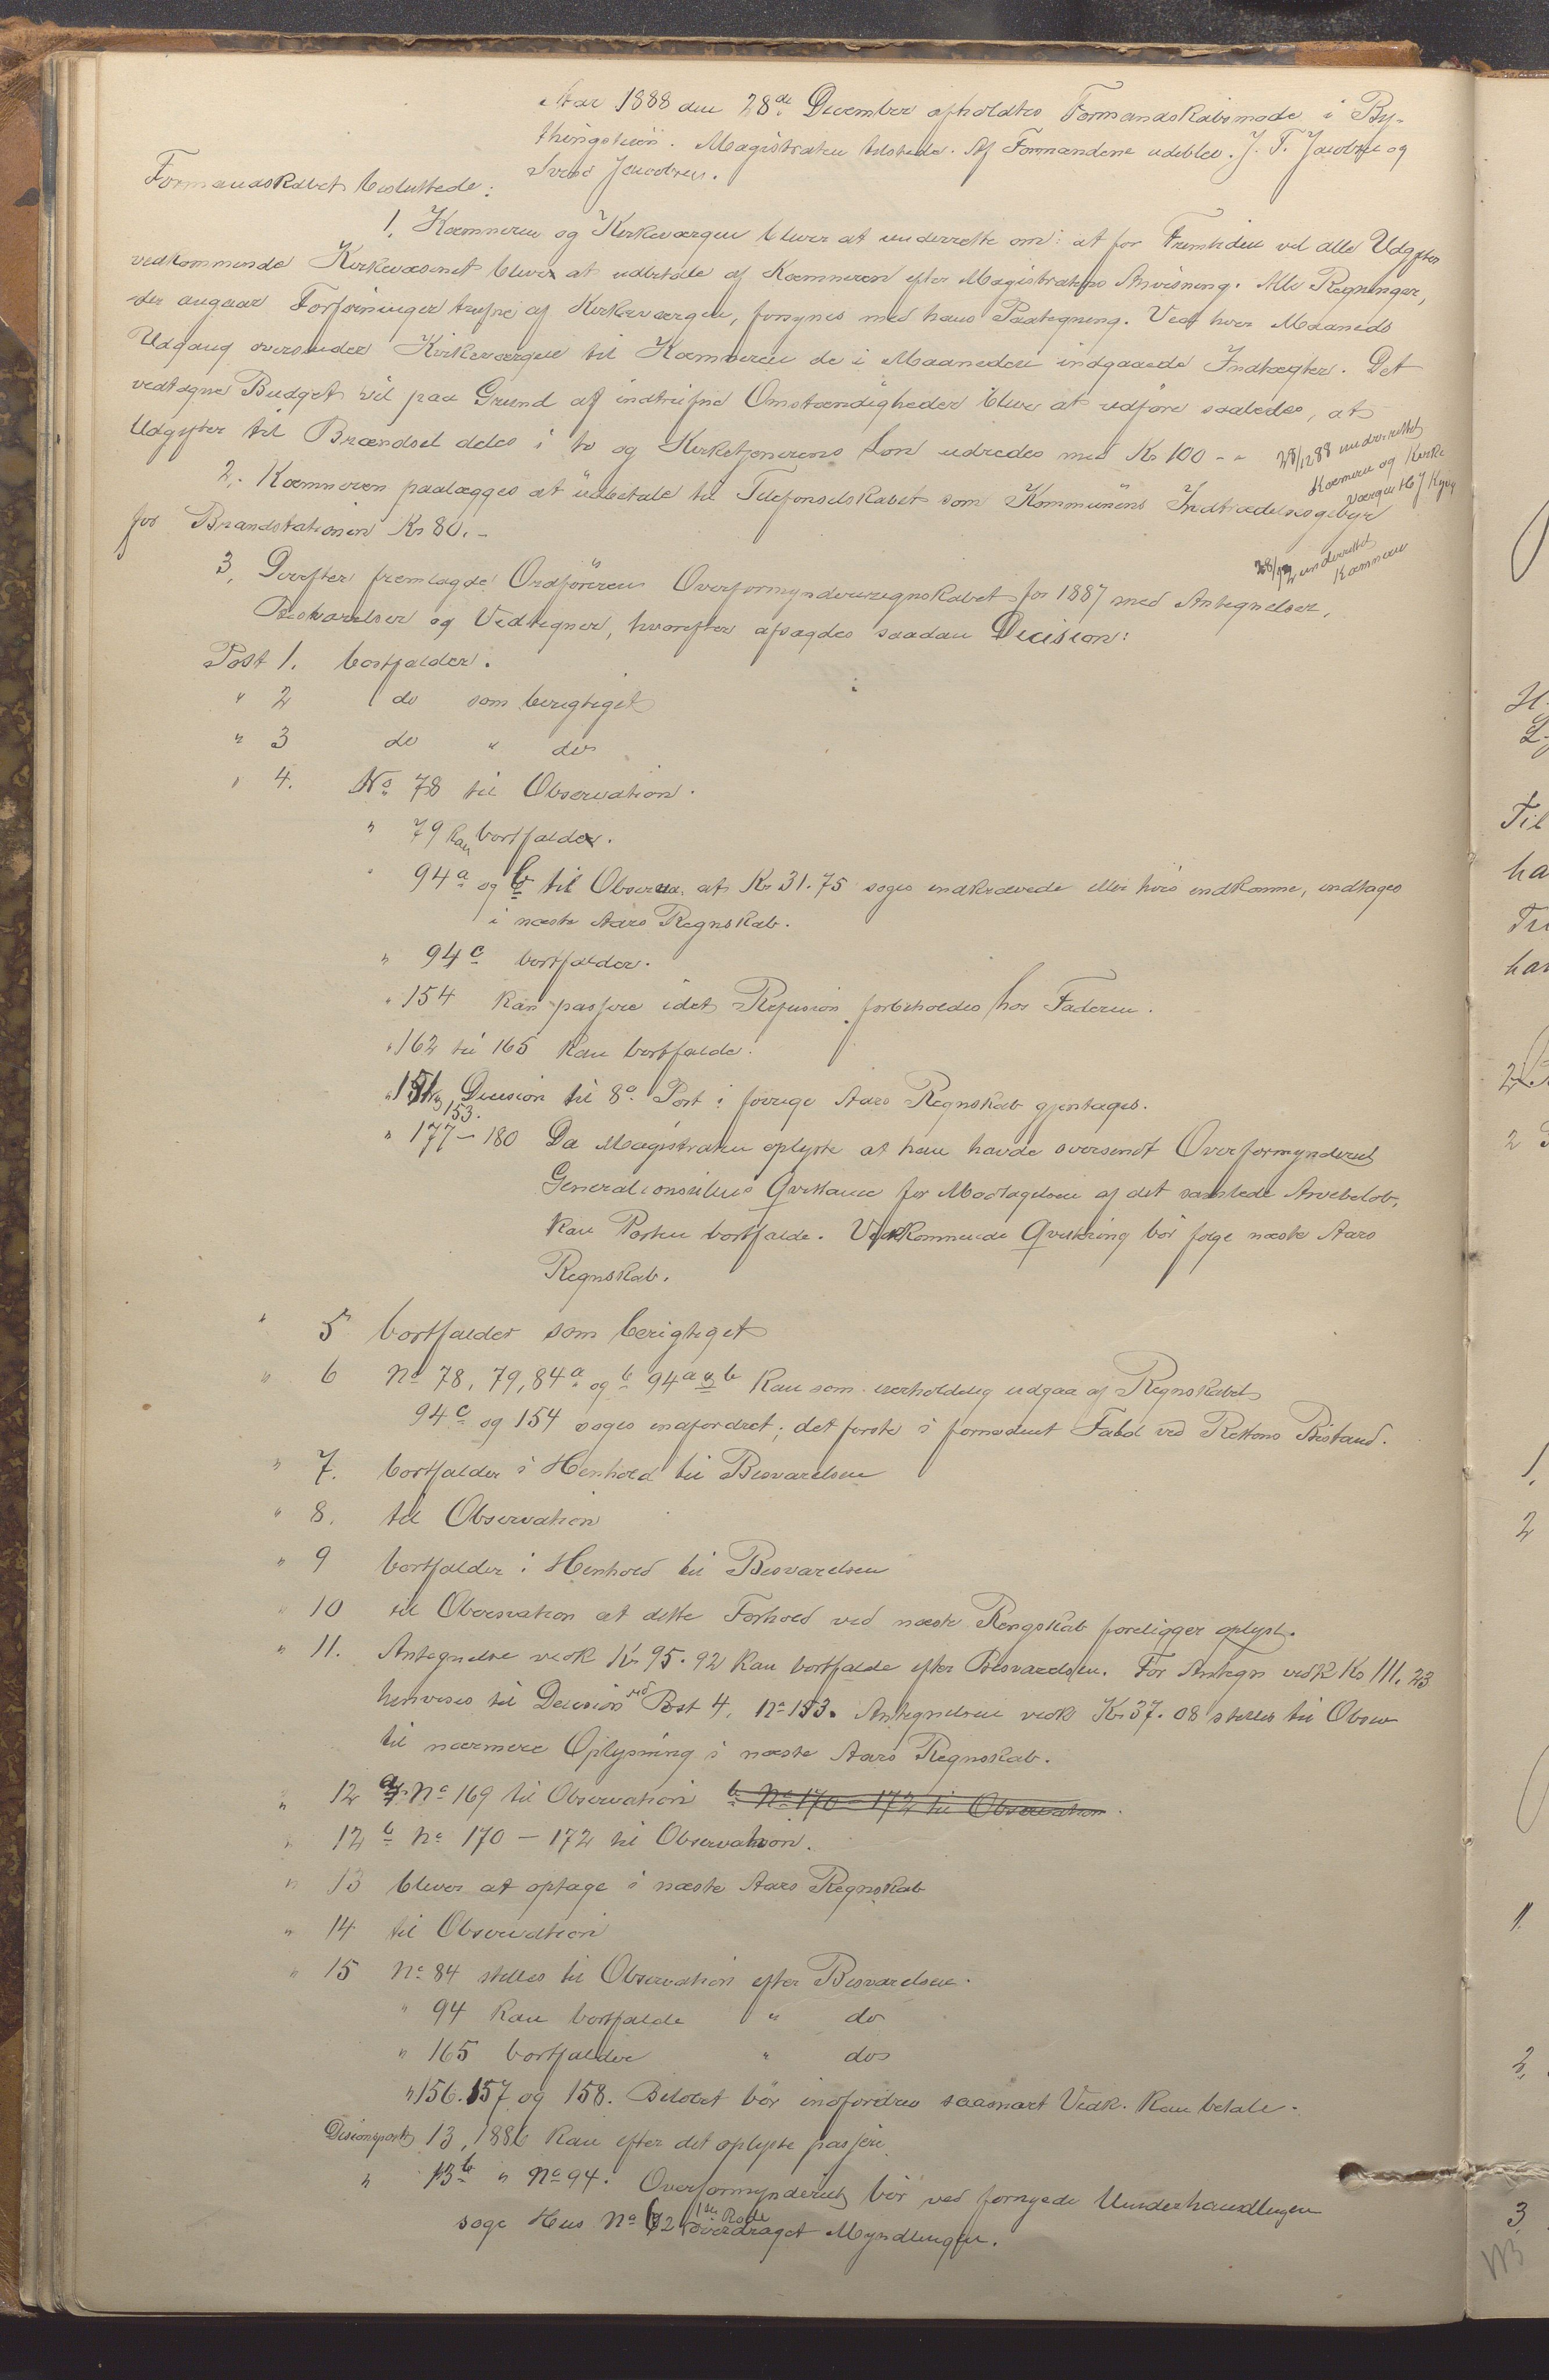 Aar 1888 den 28de December afholdtes Formandskabsmøde i By-
thingstuen. Magistraten tilstede. Af Formændene udeblev J. T. Jacobsen og
Svend Jacobsen.
Formandskabet besluttede:
1, Kæmneren og Kirkeværgen bliver at underrette om: at for Fremtiden vil alle Udgifter
vedkommende Kirkevæsenet bliver at udbetale af Kæmneren efter Magistratens Anvisning. Alle Regninger,
der angaar Forføininger trufne af Kirkeværgen, forsynes med hans Paategning. Ved hver Maaneds
Udgang oversender Kirkeværgen til Kæmneren de i Maaneden indgaaede Indtægter. Det
vedtagne Budget vil paa Grund af indtrufne Omstændigheder blive at udføre saaledes, at
Udgifter til Brændsel deles i to og Kirketjenerens Løn udredes med Kr 100 - "
28/12 88 underrettet
Kæmner og Kirke
værge
2,. Kæmneren paalægges at udbetale til Telefonselskabet som Kommunens Indtrædelsesgebyr
for Brandstationen Kr 80.-
28/12 underrettet
Kæmner
3, Derefter fremlagde Ordføreren Overformynderregnskabet for 1887 med Antegnelser,
Besvarelser og Vedtegner, hvorefter afsagdes saadan Decision:
Post 1. bortfalder.
" 2 do som berigtiget
" 3 do " do
" 4. No 78 til Observation.
" 79 kan bortfalde.
" 94 a og b til Observa. at Kr 31.75 søges indkrævede eller hvis indkomne, indtages
i næste Aars Regnskab.
" 94 c bortfalder.
" 154 kan passere idet Refusion forbeholdes hos Faderen.
" 162 til 165 kan bortfalde.
" 151 153. Decision til 8de Post i forrige Aars Regnskab gjentages.
" 177 - 180 Da Magistraten oplyste at han havde oversendt Overformynderiet
Generalconsulens Qvittance for Modtagelsen af det samlede Arvebeløb,
kan Posten bortfalde. Vedkommende Qvittering bør følge næste Aars
Regnskab.
" 5 bortfalder som berigtiget
" 6 No 78, 79, 84 a og b 94 a & b kan som uerholdelig udgaa af Regnskabet
94 c og 154 søges indfordret; det første i fornødent Fald ved Rettens Bistand.
" 7. bortfalder i Henhold til Besvarelsen
" 8. til Observation
" 9 bortfalder i Henhold til Besvarelsen
" 10 til Observation at dette Forhold ved næste Rengskab foreligger oplyst.
" 11. Antegnelse vedk Kr 95.92 kan bortfalde efter Besvarelsen. For Antegn vedk Kr 111.23
henvises til Decision ved Post 4, No 153. Antegnelsen vedk Kr 37.08 stilles til Observ
til nærmere Oplysning i næste Aars Regnskab.
" 12 a No 169 til Observation b No 170 - 172 til Observation.
" 12 b No 170 - 172 til Observation.
" 13 bliver at optage i næste Aars Regnskab
" 14 til Observation
" 15 No 84 stilles til Observation efter Besvarelsen.
" 94 kan bortfalde " do
" 165 bortfalder " do
" 156. 157 og 158. Beløbet bør indfordres saasnart Vedk. kan betale.
Desisionspost 13, 1886 kan efter det oplyste passere
" 13 b " No 94. Overformynderiet bør ved fornyede Underhandlinger
søge Hus No 62 1ste Rode overdraget Myndlingen.